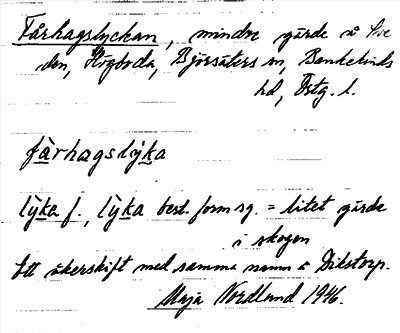 Fårhagslyckan, mindre gärde å Sve
den, Högboda, Björsäters sn, Bankekinds
hd, Östg. l.
fårhagslyka
lyka f., lyka best. form sg. = litet gärde
i skogen
Ett åkerskift med samma namn å Dikstorp.
Maja Nordlund 1946.